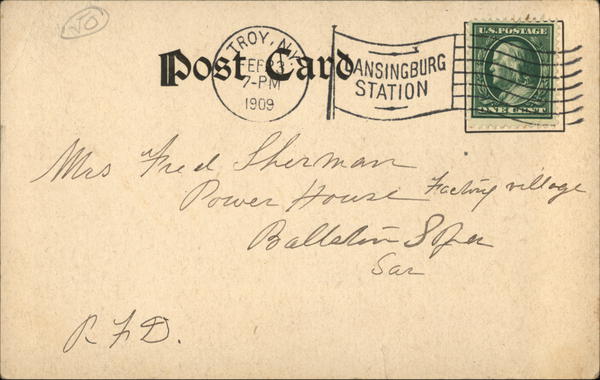 Post Card
TROY, N.Y.
FEB 23
7-PM
1909
LANSINGBURG
STATION
U.S. POSTAGE
ONE CENT
Mrs Fred Sherman
Power House Factory village
Ballston Spa
Sar
R. F. D.